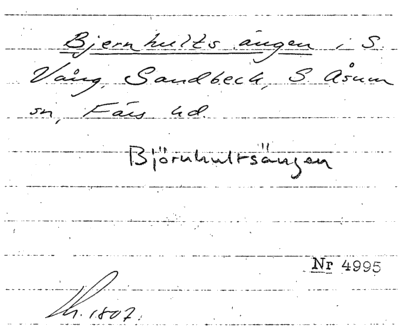 Bjernhults ängen i S.
Vång, Sandbeck, S. Åsum
sn, Färs hd.
Björnhultsängen
Nr 4995
1807.